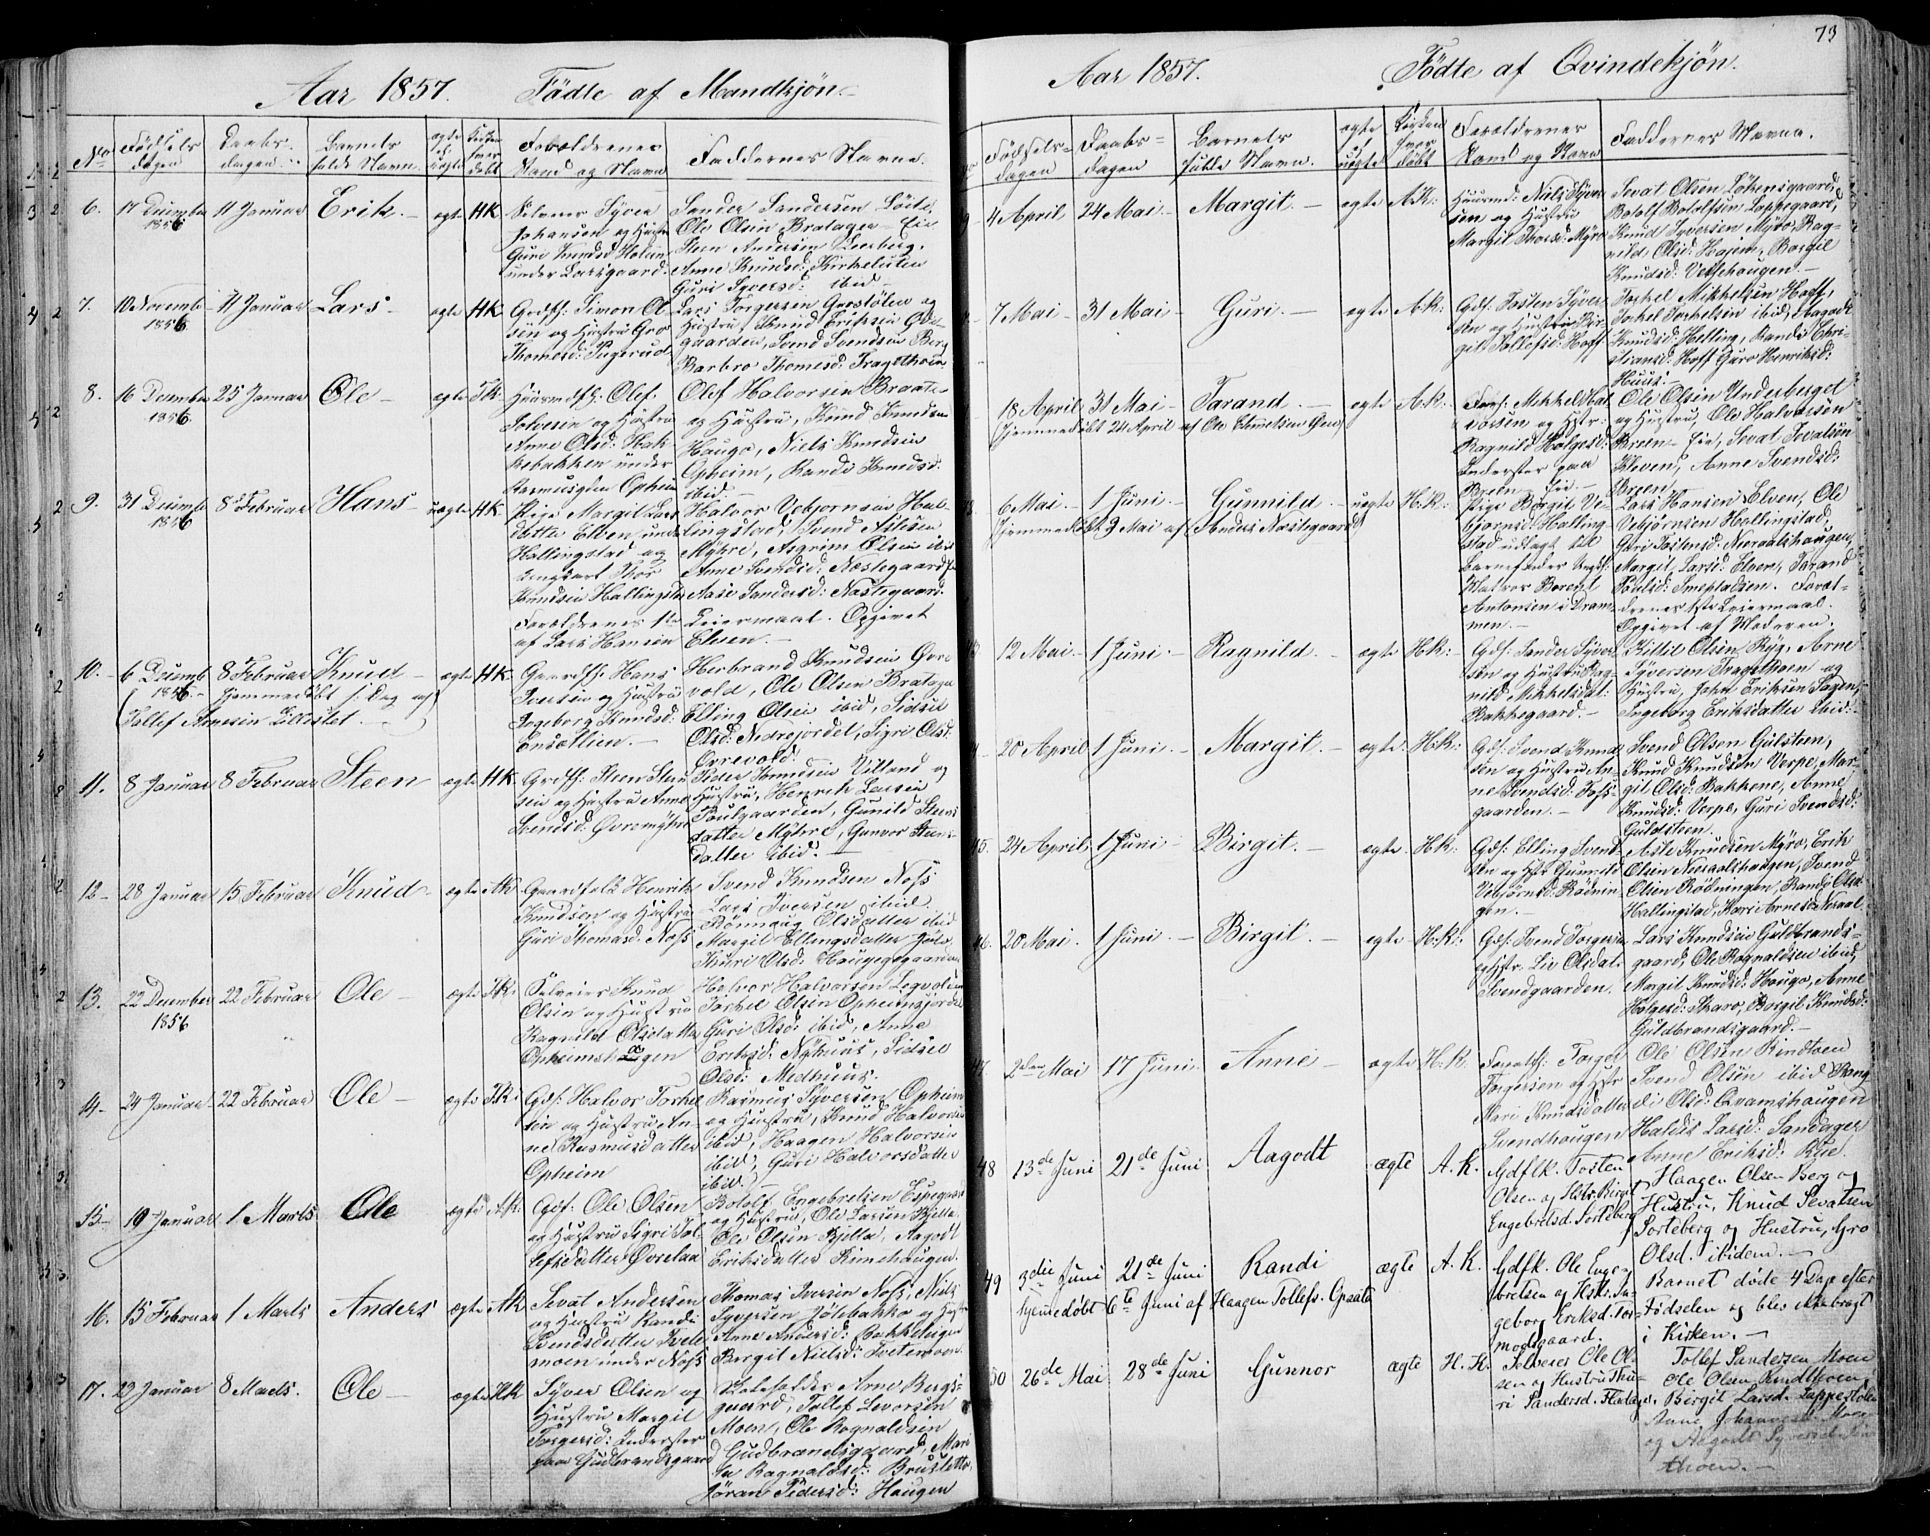 73
Aar 1857. Fødte af Mandkjøn.
No Fødsels dagen Daabs-dagen Barnets fulde Navn ægte el. uægte Kirken hvor døbt Forældrenes Stand og Navn Faddernes Navne.
6. 17 Decembr 1856 11 Januar Erik ægte HK
Selveier Syver
Johansen og Hustru
Guri Knudsd Holen
under Larsgaard.
Sander Sandersen
Ole Olsen Bratager Eie
Anne Knudsd: Kirkeluten
Guri Syversd: ibid
7. 10 Novemb 1856 11 Januar Lars ægte HK
Grdf: Simon Ol
sen og Hustru Gro
Thomesd:
Lars Torgersen Grostølen og
Hustru, Knud Eriksen
gaarden, Svend Svendsen Berg
Barbro Thomesd: Tragethoen
8. 16 December 1856 25 Januar Ole ægte T.K.
Anne Olsd:
kebakken under
Rasmusgrden Opheim
Olef Halvorsen Braate
og Hustru, Knud Knudsen
Haugo, Niels Knudsen
Opheim, Randi Knudsd:
ibid.
9. 31 Decemb 1856 8de Februar Hans uægte HK
Pige Margit Lars
datter Elven under
Hallingstad og
Ungkarl Thor
Knudsen Hallingstad
Forældrenes 1te Leiermaal. Opgivet
af Lars Hansen Elven.
Halvor Vebjørnsen Hal
lingstad, Svend Aslesen
Myhre, Asgrim Olsen ibid
Anne Svendsd: Næstegaard
Aase Sandersd: Næstegaard.
10. 6 Decemb 1856 8 Februar Knud ægte HK
(Hjemmedøbt s. Dag af
Tollef Arnesen Lillestet.)
Gaardf: Hans
Iversen og Hustru
Ingeborg Knudsd:
Herbrand Knudsen Øvre
vold, Ole Olsen Bratager
Elling Olsen ibid, Sidsel
Olsd: Nedrejordet, Sigri Olsd:
Ørevold.
11. 8 Januar 8 Februar Steen ægte HK
Grdf: Steen Steen
sen og Hustru Anne
Svendsd: Øvremyhre
Peder Knudsen Villand og
Hustru, Henrik Larsen
Poulgaarden, Gunild Steens
datter Myhre, Gunvor Steens
datter ibid.
12. 28 Januar 15 Februar Knud ægte AK
Gaardfolk Henrik
Knudsen og Hustru
Guri Thomasd. Næss
Svend Knudsen Næss
Lars Iversen ibid.
Rønnaug Olsdatter ibid
Margit Ellingsdatter
Guri Olsd: Haugegaarden
13. 22 December 1856 22 Februar Ole ægte T.K:
Selveier Knud
Olsen og Hustru
Ragnild Olsdatter
Opheimshagen
Halvor Halvorsen
Torkel Olsen Opheimsjordet
Guri Olsd: ibid, Anne
Eriksd: Nyhuus, Sidsel
Olsd: Medhuus.
14. 24 Januar 22 Februar Ole ægte T.K:
Gdf: Halvor Torkel
sen og Hustru An
ne Rasmusdatter
Opheim
Rasmus Syversen Opheim
og Hustru, Knud Halvorsen
ibid, Haagen Halvorsen
ibid, Guri Halvorsdatter
ibid.
15. 19 Januar 1 Marts Ole ægte A.K:
Gdf: Ole Olsen
og Hustru Sigri Tol
lefsdatter Øvrelaa
Botolf Engebretsen Espegaard
og Hustru, Ole Larsen Bjella
Ole Olsen Bjella, Aagodt
Eriksdatter Rimehaugen.
16. 15 Februar 1 Marts Anders ægte AK
Sevat Andersen
og Hustru Randi
Svendsdatter Tvete
moen under Næss
Thomas Iversen Næss, Niels
Syversen Jøtebakke og Hustru
Anne Andersd: Bakkehagen
Bergit Nielsd: Tvetemoen
17. 22 Januar 8 Marts. Ole ægte H.K
Syver Olsen og
Hustru Margit
Torgersd: Inderster
paa Gudbrandsgaard
Skoleholder Arne Bergs-
gaard, Tollef Levorsen
Moen, Ole Ragnaldsen
Gudbrandsgaard, Mari
Ragnaldsd: Brusletto,
Jøran Pedersd: Haugen
Aar 1857. Fødte af Qvindekjøn.
Fødsels-dagen Daabs-dagen Barnets fulde Navn. ægte el uægte Kirken hvor døbt Forældrenes Stand og Navn Faddernes Navne.
4 April 24 Mai Margit ægte A.K:
Huusmd: Niels Syver
sen og Hustru
Margit Thorsd: Myro
Sevat Olsen Løkensgaard,
Botolf Botolfsen Loppegaard,
Knud Syversen Myro, Rag-
nild Olsd: Hajem, Bergit
Knudsd: Vetlehaugen.
7 Mai 31 Mai Guri ægte A.K:
Gdf: Tosten Syver
sen og Hustru Bir
git Tollefsd: Hoff
Torkel Mikkelsen Hoff,
Torkel Torkelsen ibid, Aagodt
Knudsd: Helling, Randi Chri
stiansd: Hoff Guro Henriksd:
Huus.
18 April 31 Mai Tarand ægte A.K:
(hjemmedøbt 24 April af Ole Clemetsen Grøn)
Forf: Mikkel Hal
vorsen og Hstr:
Ragnild Holgesd:
Inderster paa
Breen Eie
Ole Olsen Underberget
og Hustru, Ole Halvorsen
Breen Eie, Sevat Sevatsen
Kleven, Anne Svendsd:
Breen.
6 Mai 1 Juni Gunnild uægte H.K:
(hjemmedøbt 9 Mai af Anders Næstegaard)
Pige Birgit Ve-
bjørnsd: Halling
stad udlagt til
Barnefader
Matros Berent
Antonsen i Dram
men.
Lars Hansen Elven, Ole
Vebjørnsen Hallingstad
Guri Tostensd: Neraalshaugen,
Margit Larsd: Elven, Tarand
Poulsd: Smepladsen. Foræl-
drenes 1ste Leiermaal.
Opgivet af Moderen.
12 Mai 1 Juni Ragnild ægte H.K:
Gdf: Sander Syver
sen og Hustru Rag-
nild Mikkelsdat:
Bakkegaard.
Kittil Olsen Ryg, Arne
Syversen Tragethoen og
Hustru, John Eriksen Sagen,
Ingeborg Eriksdatter ibid:
20 April 1 Juni Margit ægte H.K:
Gdf: Svend Knud
sen og Hustru An-
ne Svendsd: Tofs
gaarden.
Svend Olsen Gulsteen,
Knud Knudsen Verpe, Mar-
git Olsd: Bakkene, Anne
Knudsd: Verpe, Guri Svendsd:
Guldsteen
45. 24 April 1 Juni Birgit ægte H.K:
Gdf: Elling Svend
sen og Hstr Gunnild
Vebjørnsd: Rødnin
gen.
Asle Knudsen Myro, Erik
Olsen Neraalshaugen, Svend
Olsen Rødningen, Randi Olsd:
Hallingstad, Kari Arnesd: Neraal
46. 20 Mai. 1 Juni Birgit ægte H.K:
Gdf: Svend Torgersen
og Hstr. Liv Olsdat:
Svendgaarden.
Lars Knudsen Guldbrands-
gaard, Ole Ragnaldsen ibid,
Margit Knudsd: Haugo, Anne
Holgesd: Skaro, Birgit Knudsd:
Guldbrandsgaard.
47. 2den Mai 17 Juni Anne ægte H.K:
Torger
Torgersen og Hstr
Mari Knudsdatter
Svendhaugen
Ole Olsen Rindtoen
Svend Olsen ibid Rang
di Olsd: Qvamshaugen
Haldis Larsd: Sandager
Anne Eriksd. Rue.
48 13de Juni 21de Juni Aagodt ægte A.K.
Gdflk. Tosten
Olsen og Hstr Birgit
Engebretsd. Sorteberg
Haagen Olsen Berg og
Hustru, Knud Sevatsen
Sorteberg og Hustru, Gro
Olsd. ibidem.
49 3die Juni 21de Juni Randi ægte A.K.
hjemmedøbt 6te Juni af Haagen Tollefs. Graata
Gdfk. Ole Enge-
bretsen og Hstr. In-
geborg Eriksd. Tor-
modsgaard.
Barnet døde 4 Dage efter
Fødselen og blev ikke bragt
i Kirken.
50 26de Mai 28de Juni Gunnor ægte H.K.
Selveier Ole Ol-
sen og Hustru Thu-
ri Sandersd. Flatager
Tollef Sandersen Moen
Ole Olsen Rindthoen,
Birgit Larsd. Loppestølen
Anne Johannesd. Moen
og Aagodt Syversd.
thoen.